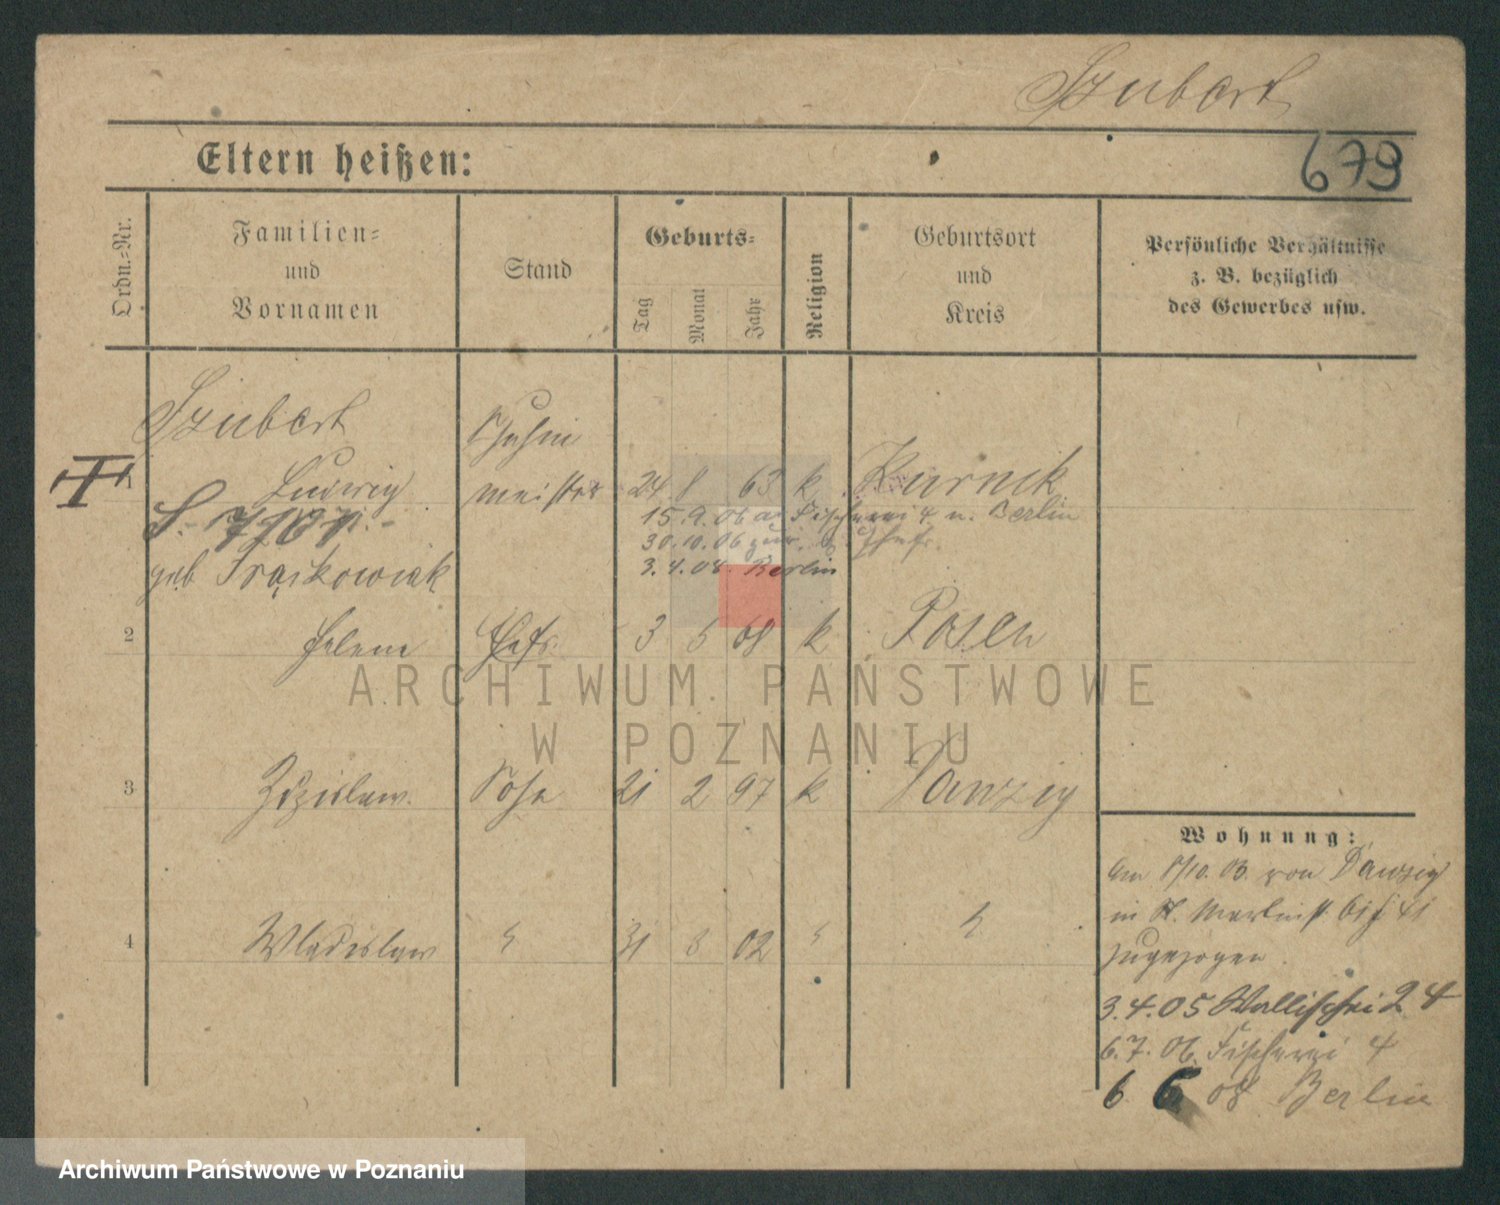 Szubert
679
Eltern heißen:
Ordn.-Nr.
Familien-
und
Vornamen
Stand
Geburts-
Tag
Monat
Jahr
Religion
Geburtsort
und
Kreis
Persönliche Verhältnisse
z. B. bezüglich
des Gewerbes usw.
Szubert
Ludwig
meister 24 8 63 k Kurnik
15.9.06 a. Fischerei 4 n. Berlin
30.10.06 zur.
3.4.08. Berlin
geb Frąckowiak
2 Helene Ehefr. 3 5 68 k Posen
3 Zdzislaw. Sohn 21 2 97 k Danzig
4 Wladislaw " 31 8 02 " "
Wohnung:
am 8/10. 03. von Danzig
in St. Martinstr.
zugezogen.
3.4.05 Wallischei 2 4
6.7.06 Fischerei 4
6 6 08 Berlin
ARCHIWUM PAŃSTWOWE
W POZNANIU
Archiwum Państwowe w Poznaniu